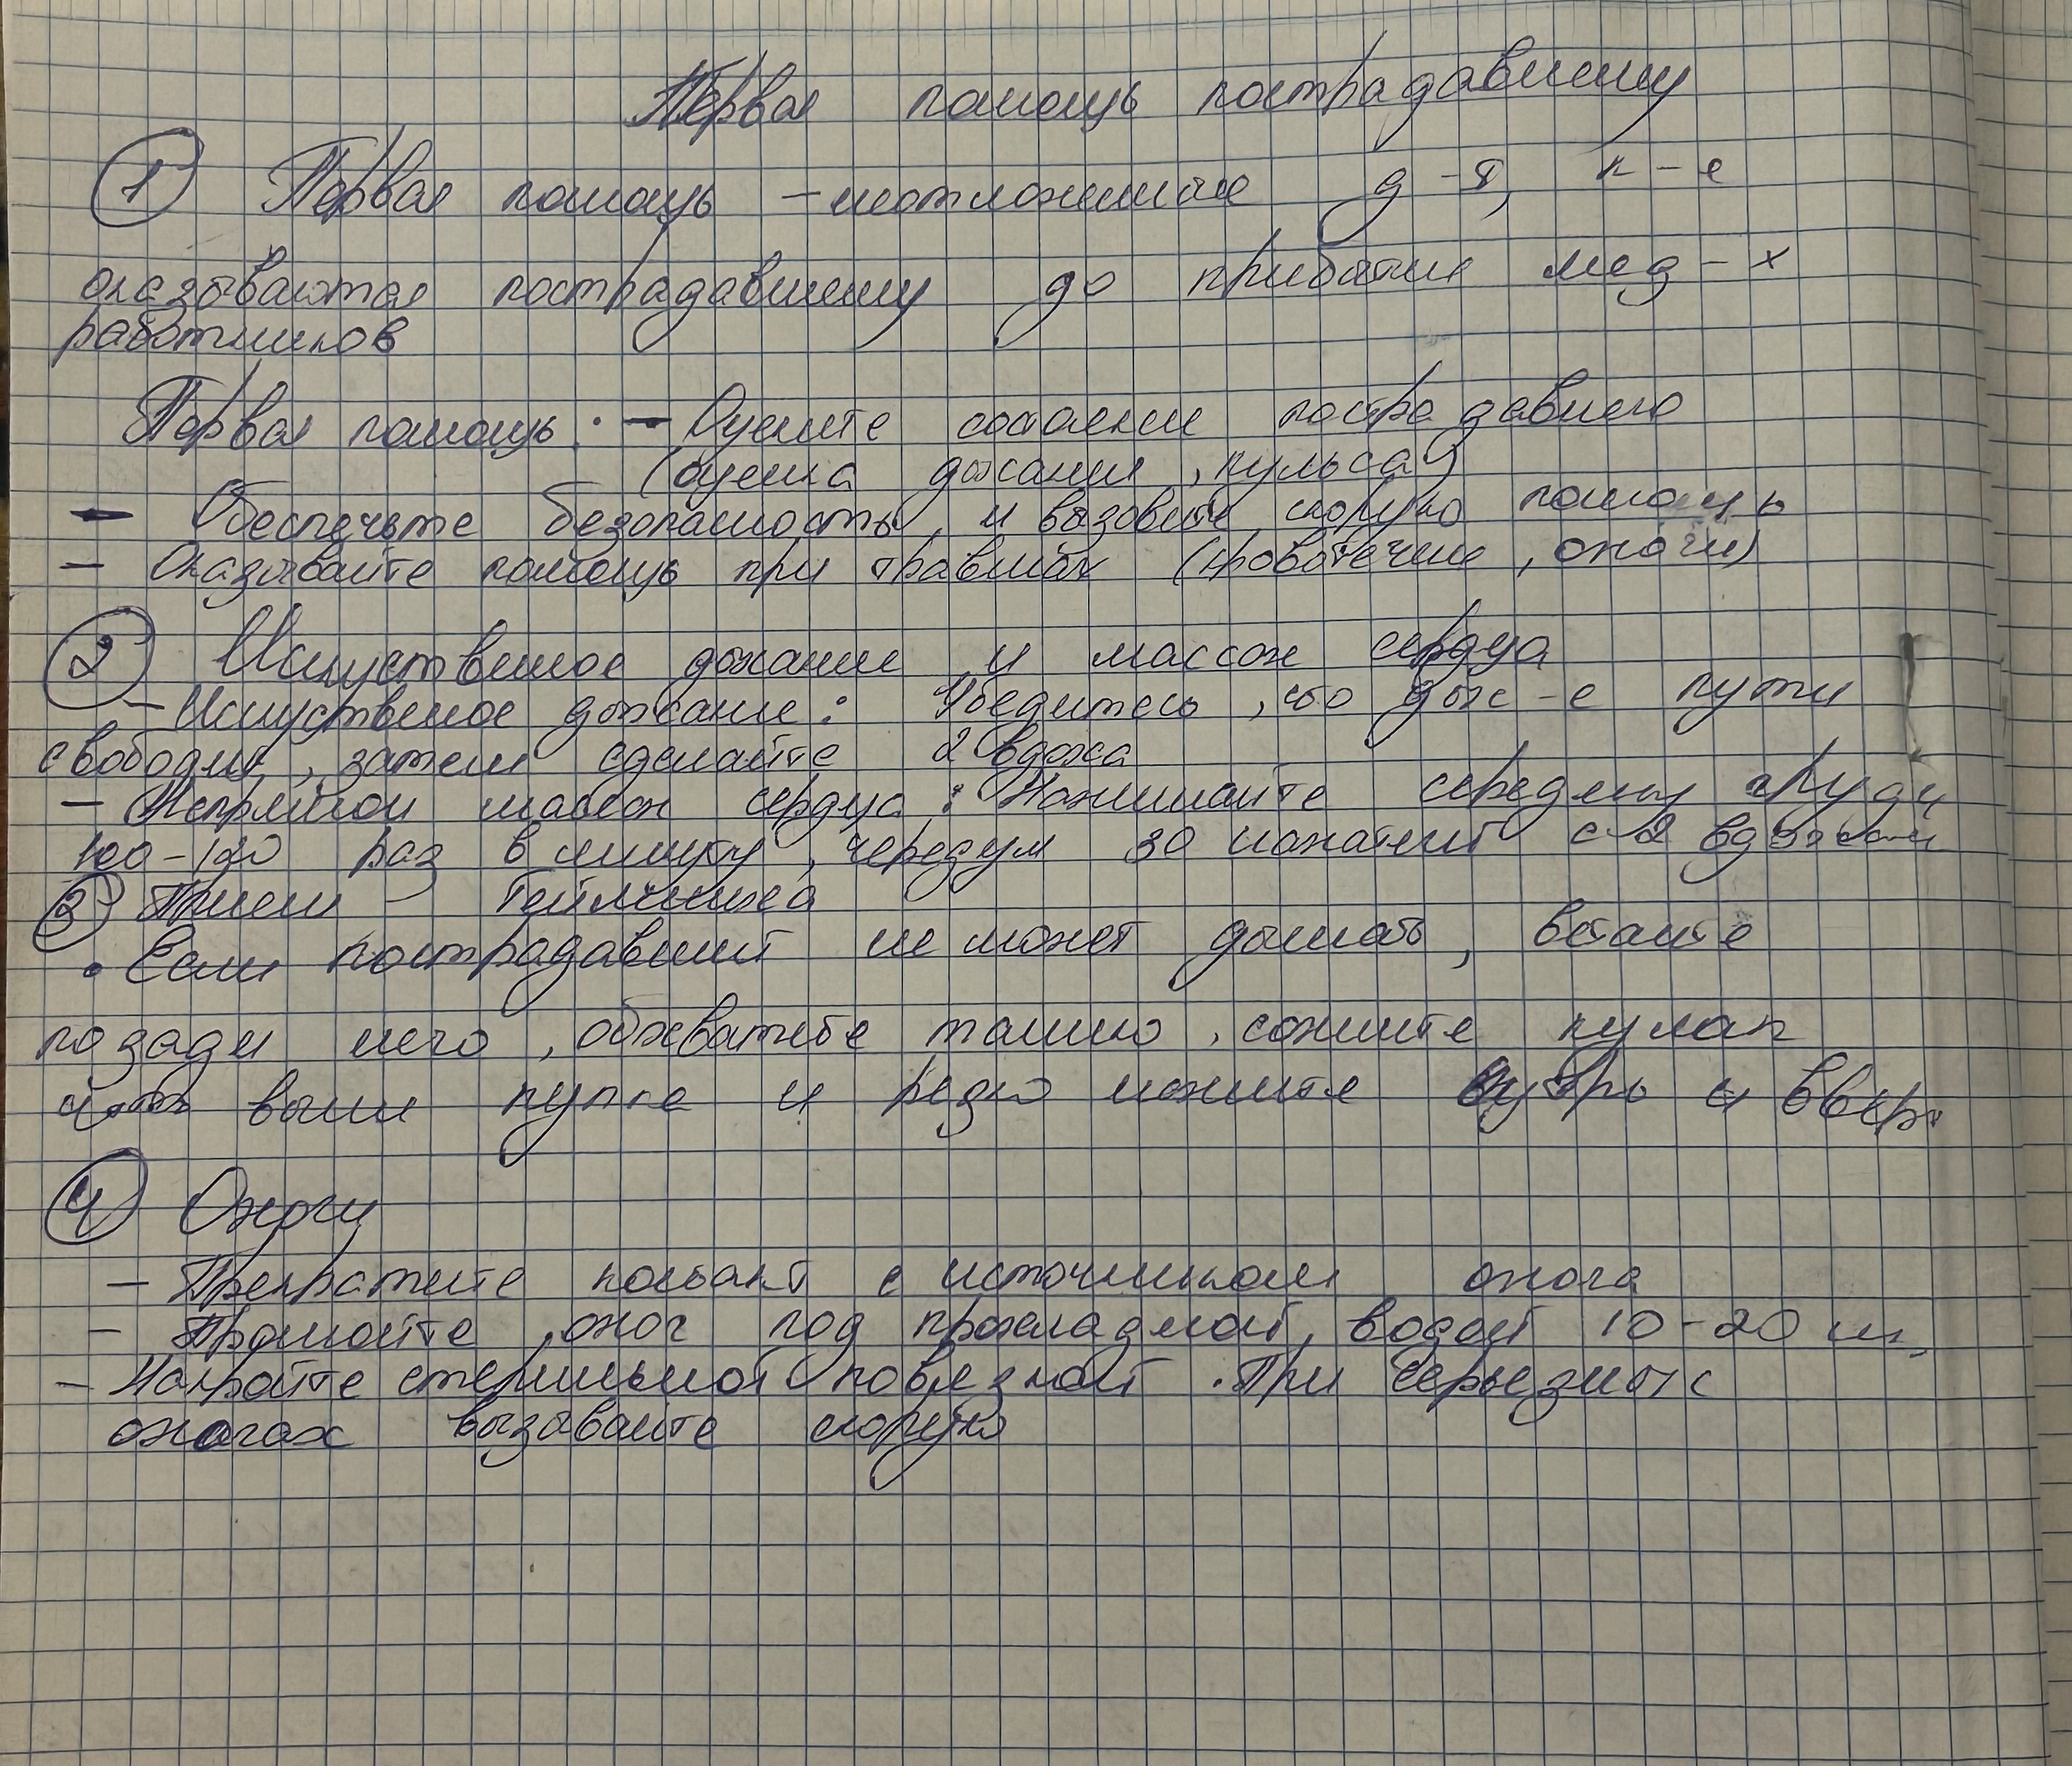 Первая помощь пострадавшему
1 Первая помощь – неотложные д-я, к-е
оказываются пострадавшему до прибытия мед-х
работников
Первая помощь: – Оцените состояние пострадавшего
(оценка дыхания, пульса)
– Обеспечьте безопасность, и вызовите скорую помощь
– Оказывайте помощь при травмах (кровотечение, ожоги)
2 Искуственное дыхание и массаж сердца
– Искуственое дыхание: Убедитесь, что дых-е пути
свободны, затем сделайте 2 вдоха
– Непрямой массаж сердца: Нажимайте середину груди
100-120 раз в минуту, чередуя 30 нажатий с 2 вдохами
3 Прием – Геймлиха
• Если пострадавший не может дышать, встаньте
позади него, обхватите талию, сожмите кулак
чуть выше пупка и резко нажмите внутрь и вверх
4 Ожоги
– Прекратите контакт с источником ожога
– Промойте ожог под прохладной водой 10-20 м.
– Накройте стерильной повязкой. При серьезных
ожогах вызывайте скорую